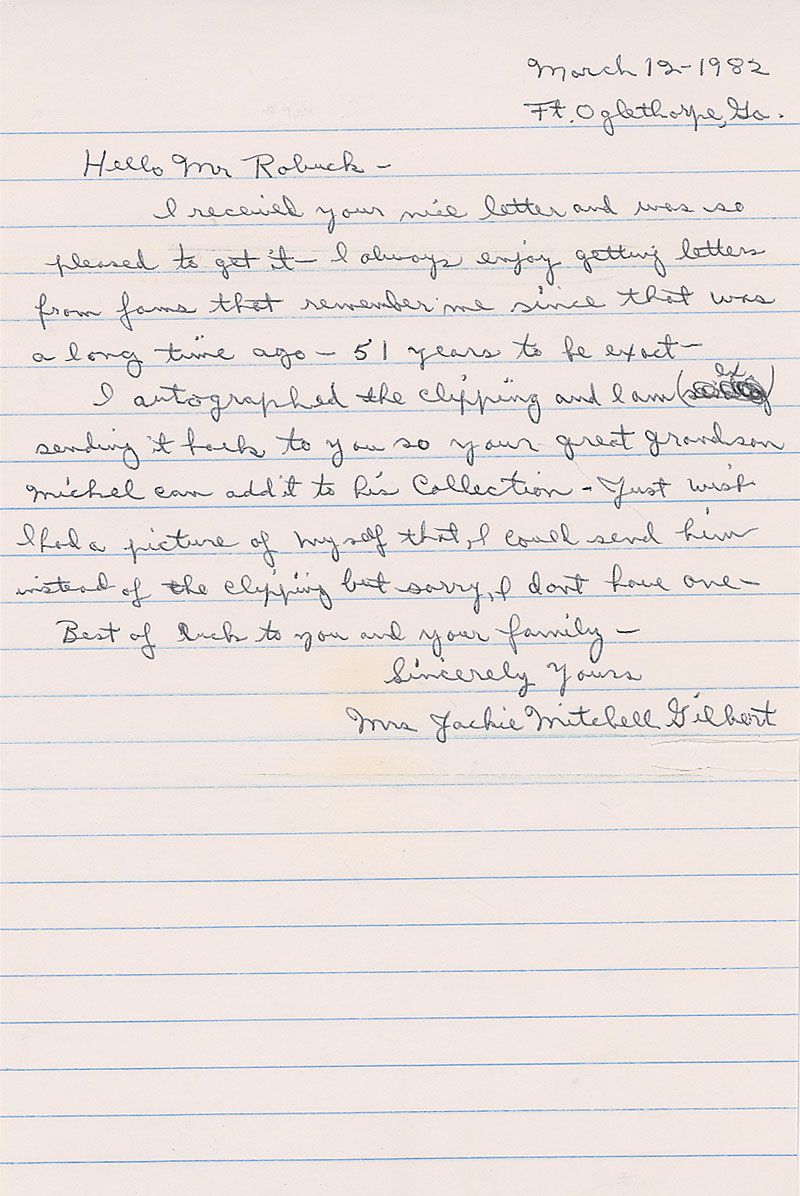 March 12-1982
Ft. Oglethorpe, Ga.
Hello Mr Robuck -
I received your nice letter and was so
pleased to get it - I always enjoy getting letters
from fans that remember me since that was
a long time ago - 51 years to be exact -
I autographed the clipping and I am (
sending it back to you so your great grandson
Michel can add it to his Collection - Just wish
I had a picture of myself that, I could send him
instead of the clipping but sorry, I dont have one -
Best of luck to you and your family -
Sincerely Yours
Mrs Jackie Mitchell Gilbert